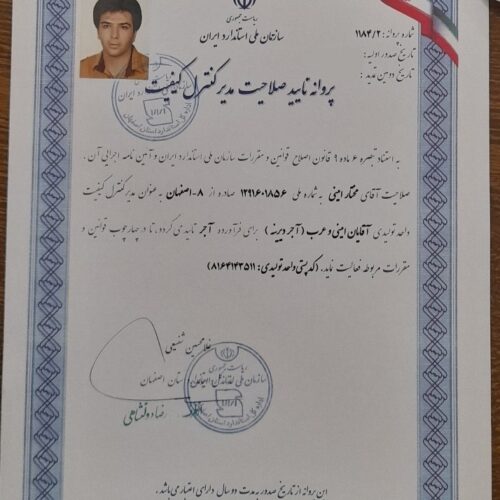 ریاست جمهوری
سازمان ملی استاندارد ایران
شماره پروانه: ۱۱۸۴/۲
تاریخ صدور اولیه:
تاریخ دومین تمدید:
پروانه تایید صلاحیت مدیر کنترل کیفیت
به استناد تبصره ۶ ماده ۹ قانون اصلاح قوانین و مقررات سازمان ملی استاندارد ایران و آئین نامه اجرائی آن،
صلاحیت آقای مختار امینی به شماره ملی ۱۲۹۱۶۰۱۸۵۶ صادره از ۸-اصفهان به عنوان مدیر کنترل کیفیت
واحد تولیدی آقایان امینی و عرب (آجر دیرینه) برای فرآورده آجر تائیدی گردد، تا در چهارچوب قوانین و
مقررات مربوطه فعالیت نماید. (کد پستی واحد تولیدی: ۸۱۶۴۱۴۳۵۱۱)
غلامحسین شفیعی
ریاست جمهوری
سازمان ملی استاندارد ایران
استان اصفهان
اداره کل استاندارد استان اصفهان
این پروانه از تاریخ صدور به مدت دو سال دارای اعتبار می باشد.